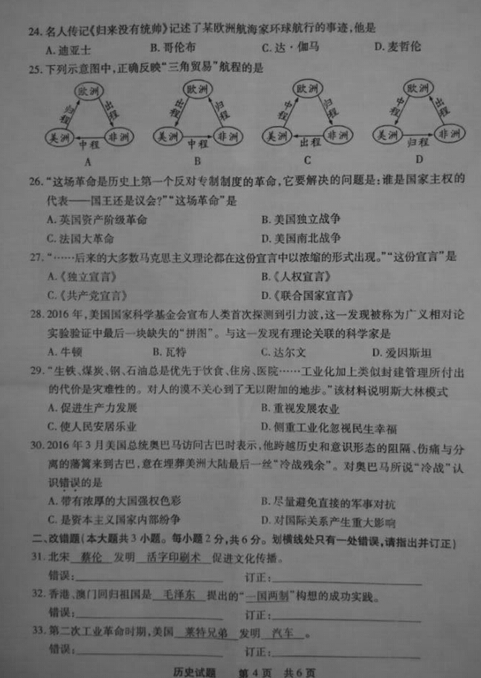 24. 名人传记《归来没有统帅》记述了某欧洲航海家环球航行的事迹,他是
A. 迪亚士 B. 哥伦布 C. 达·伽马 D. 麦哲伦
25. 下列示意图中,正确反映“三角贸易”航程的是
欧洲 欧洲 欧洲 欧洲
出程 归程
美洲 中程 非洲 美洲 中程 非洲 美洲 出程 非洲 美洲 归程 非洲
A B C D
26. “这场革命是历史上第一个反对专制制度的革命,它要解决的问题是:谁是国家主权的
代表——国王还是议会?”“这场革命”是
A. 英国资产阶级革命 B. 美国独立战争
C. 法国大革命 D. 美国南北战争
27. “……后来的大多数马克思主义理论都在这份宣言中以浓缩的形式出现。”“这份宣言”是
A.《独立宣言》 B.《人权宣言》
C.《共产党宣言》 D.《联合国家宣言》
28. 2016 年,美国国家科学基金会宣布人类首次探测到引力波,这一发现被称为广义相对论
实验验证中最后一块缺失的“拼图”。与这一发现有理论关联的科学家是
A. 牛顿 B. 瓦特 C. 达尔文 D. 爱因斯坦
29. “生铁、煤炭、钢、石油总是优先于饮食、住房、医院……工业化加上类似封建管理所付出
的代价是灾难性的。对人的漠不关心到了无以附加的地步。”该材料说明斯大林模式
A. 促进生产力发展 B. 重视发展农业
C. 使人民安居乐业 D. 侧重工业化忽视民生幸福
30. 2016 年 3 月美国总统奥巴马访问古巴时表示,他跨越历史和意识形态的阻隔、伤痛与分
离的藩篱来到古巴,意在埋葬美洲大陆最后一丝“冷战残余”。对奥巴马所说“冷战”认
识错误的是
A. 带有浓厚的大国强权色彩 B. 尽量避免直接的军事对抗
C. 是资本主义国家内部纷争 D. 对国际关系产生重大影响
二、改错题(本大题共 3 小题。每小题 2 分,共 6 分。划横线处只有一处错误,请指出并订正)
31. 北宋 蔡伦 发明 活字印刷术 促进文化传播。
错误:____ 订正:____
32. 香港、澳门回归祖国是 毛泽东 提出的“一国两制”构想的成功实践。
错误:____ 订正:____
33. 第二次工业革命时期,美国 莱特兄弟 发明 汽车 。
错误:____ 订正:____
历史试题 第 4 页 共 6 页